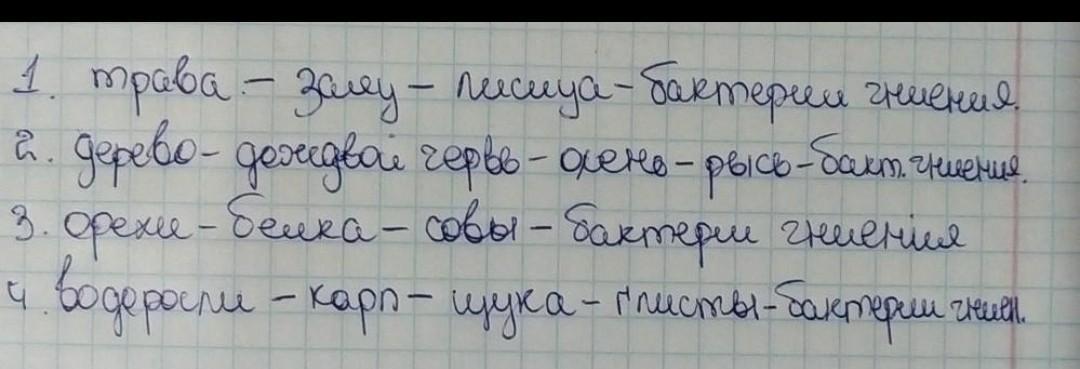 1. трава - заяц - лисица - бактерии гниения.
2. дерево - дождвой червь - олень - рысь - бакт. гниения.
3. орехи - белка - совы - бактерии гниения
4. водоросли - карп - щука - глисты - бактерии гниен.